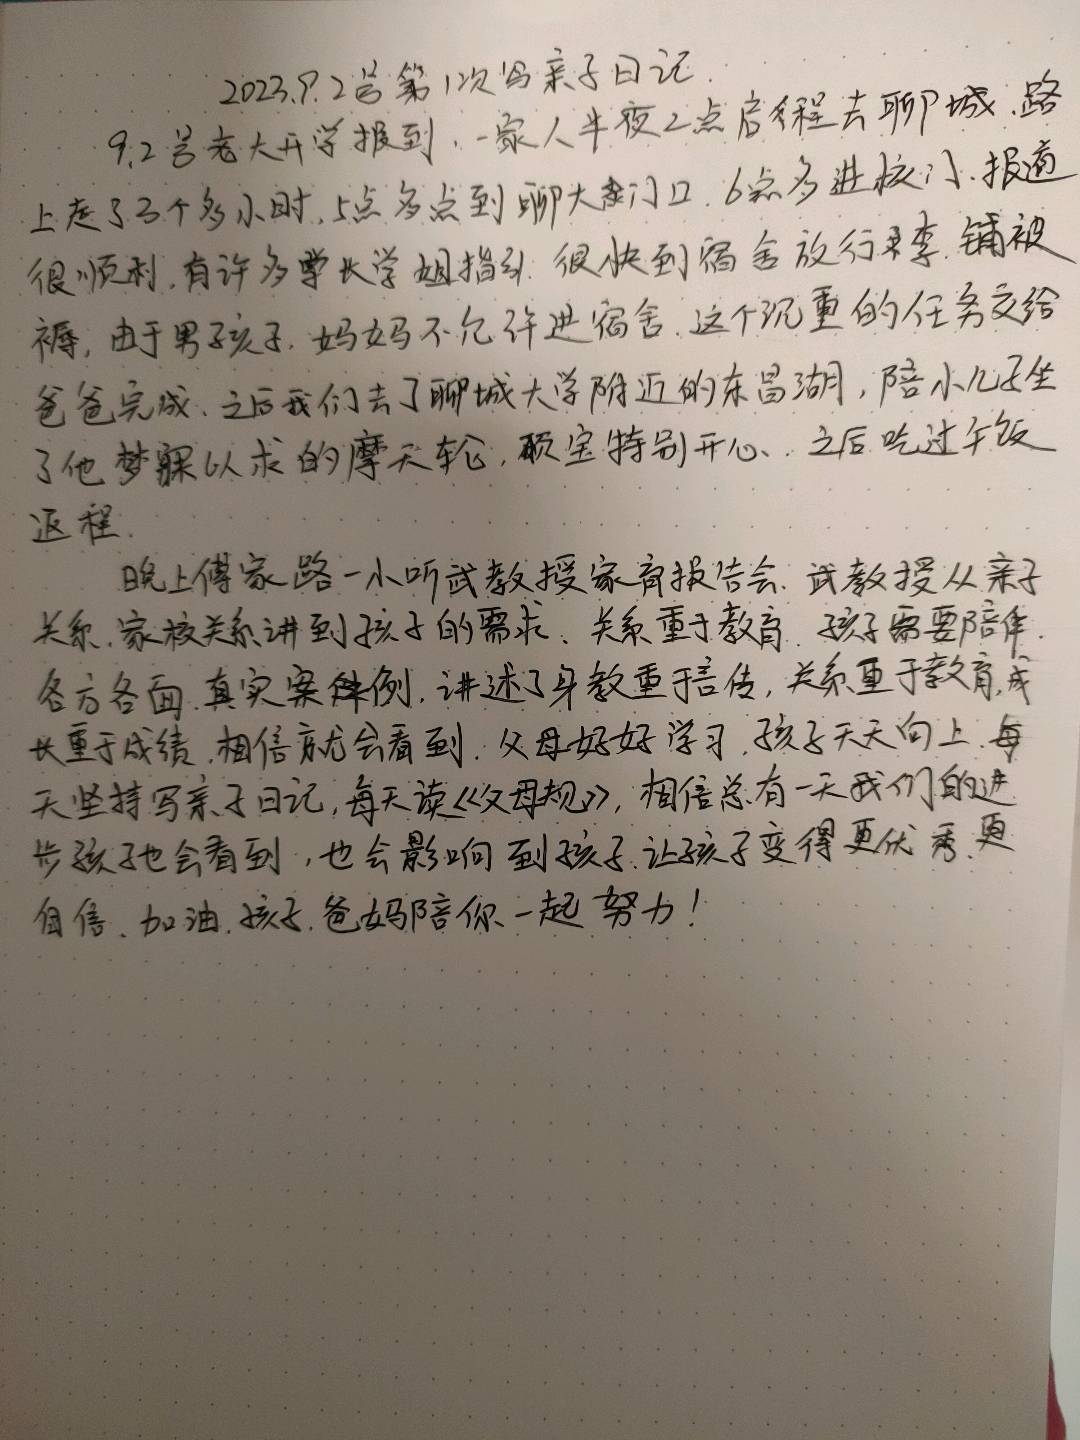 2023.9.2号第1次写亲子日记.
9.2号老大开学报到,一家人半夜2点启程去聊城.路
上走了3个多小时,5点多点到聊大门口.6点多进校门.报道
很顺利,有许多学长学姐指引.很快到宿舍放行李.铺被
褥,由于男孩子.妈妈不允许进宿舍.这个沉重的任务交给
爸爸完成.之后我们去了聊城大学附近的东昌湖,陪小儿子坐
了他梦寐以求的摩天轮,硕宝特别开心.之后吃过午饭
返程.
晚上傅家路一小听武教授家育报告会.武教授从亲子
关系.家校关系讲到孩子的需求.关系重于教育.孩子需要陪伴.
各方各面.真实案件例,讲述了身教重于言传,关系重于教育,成
长重于成绩.相信就会看到.父母好好学习.孩子天天向上.每
天坚持写亲子日记,每天读《父母规》,相信总有一天我们的进
步孩子也会看到,也会影响到孩子.让孩子变得更优秀.更
自信.加油.孩子.爸妈陪你一起努力!